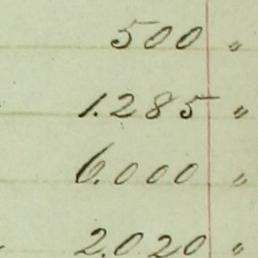 500 "
1.285 "
6.000 "
2.020 "